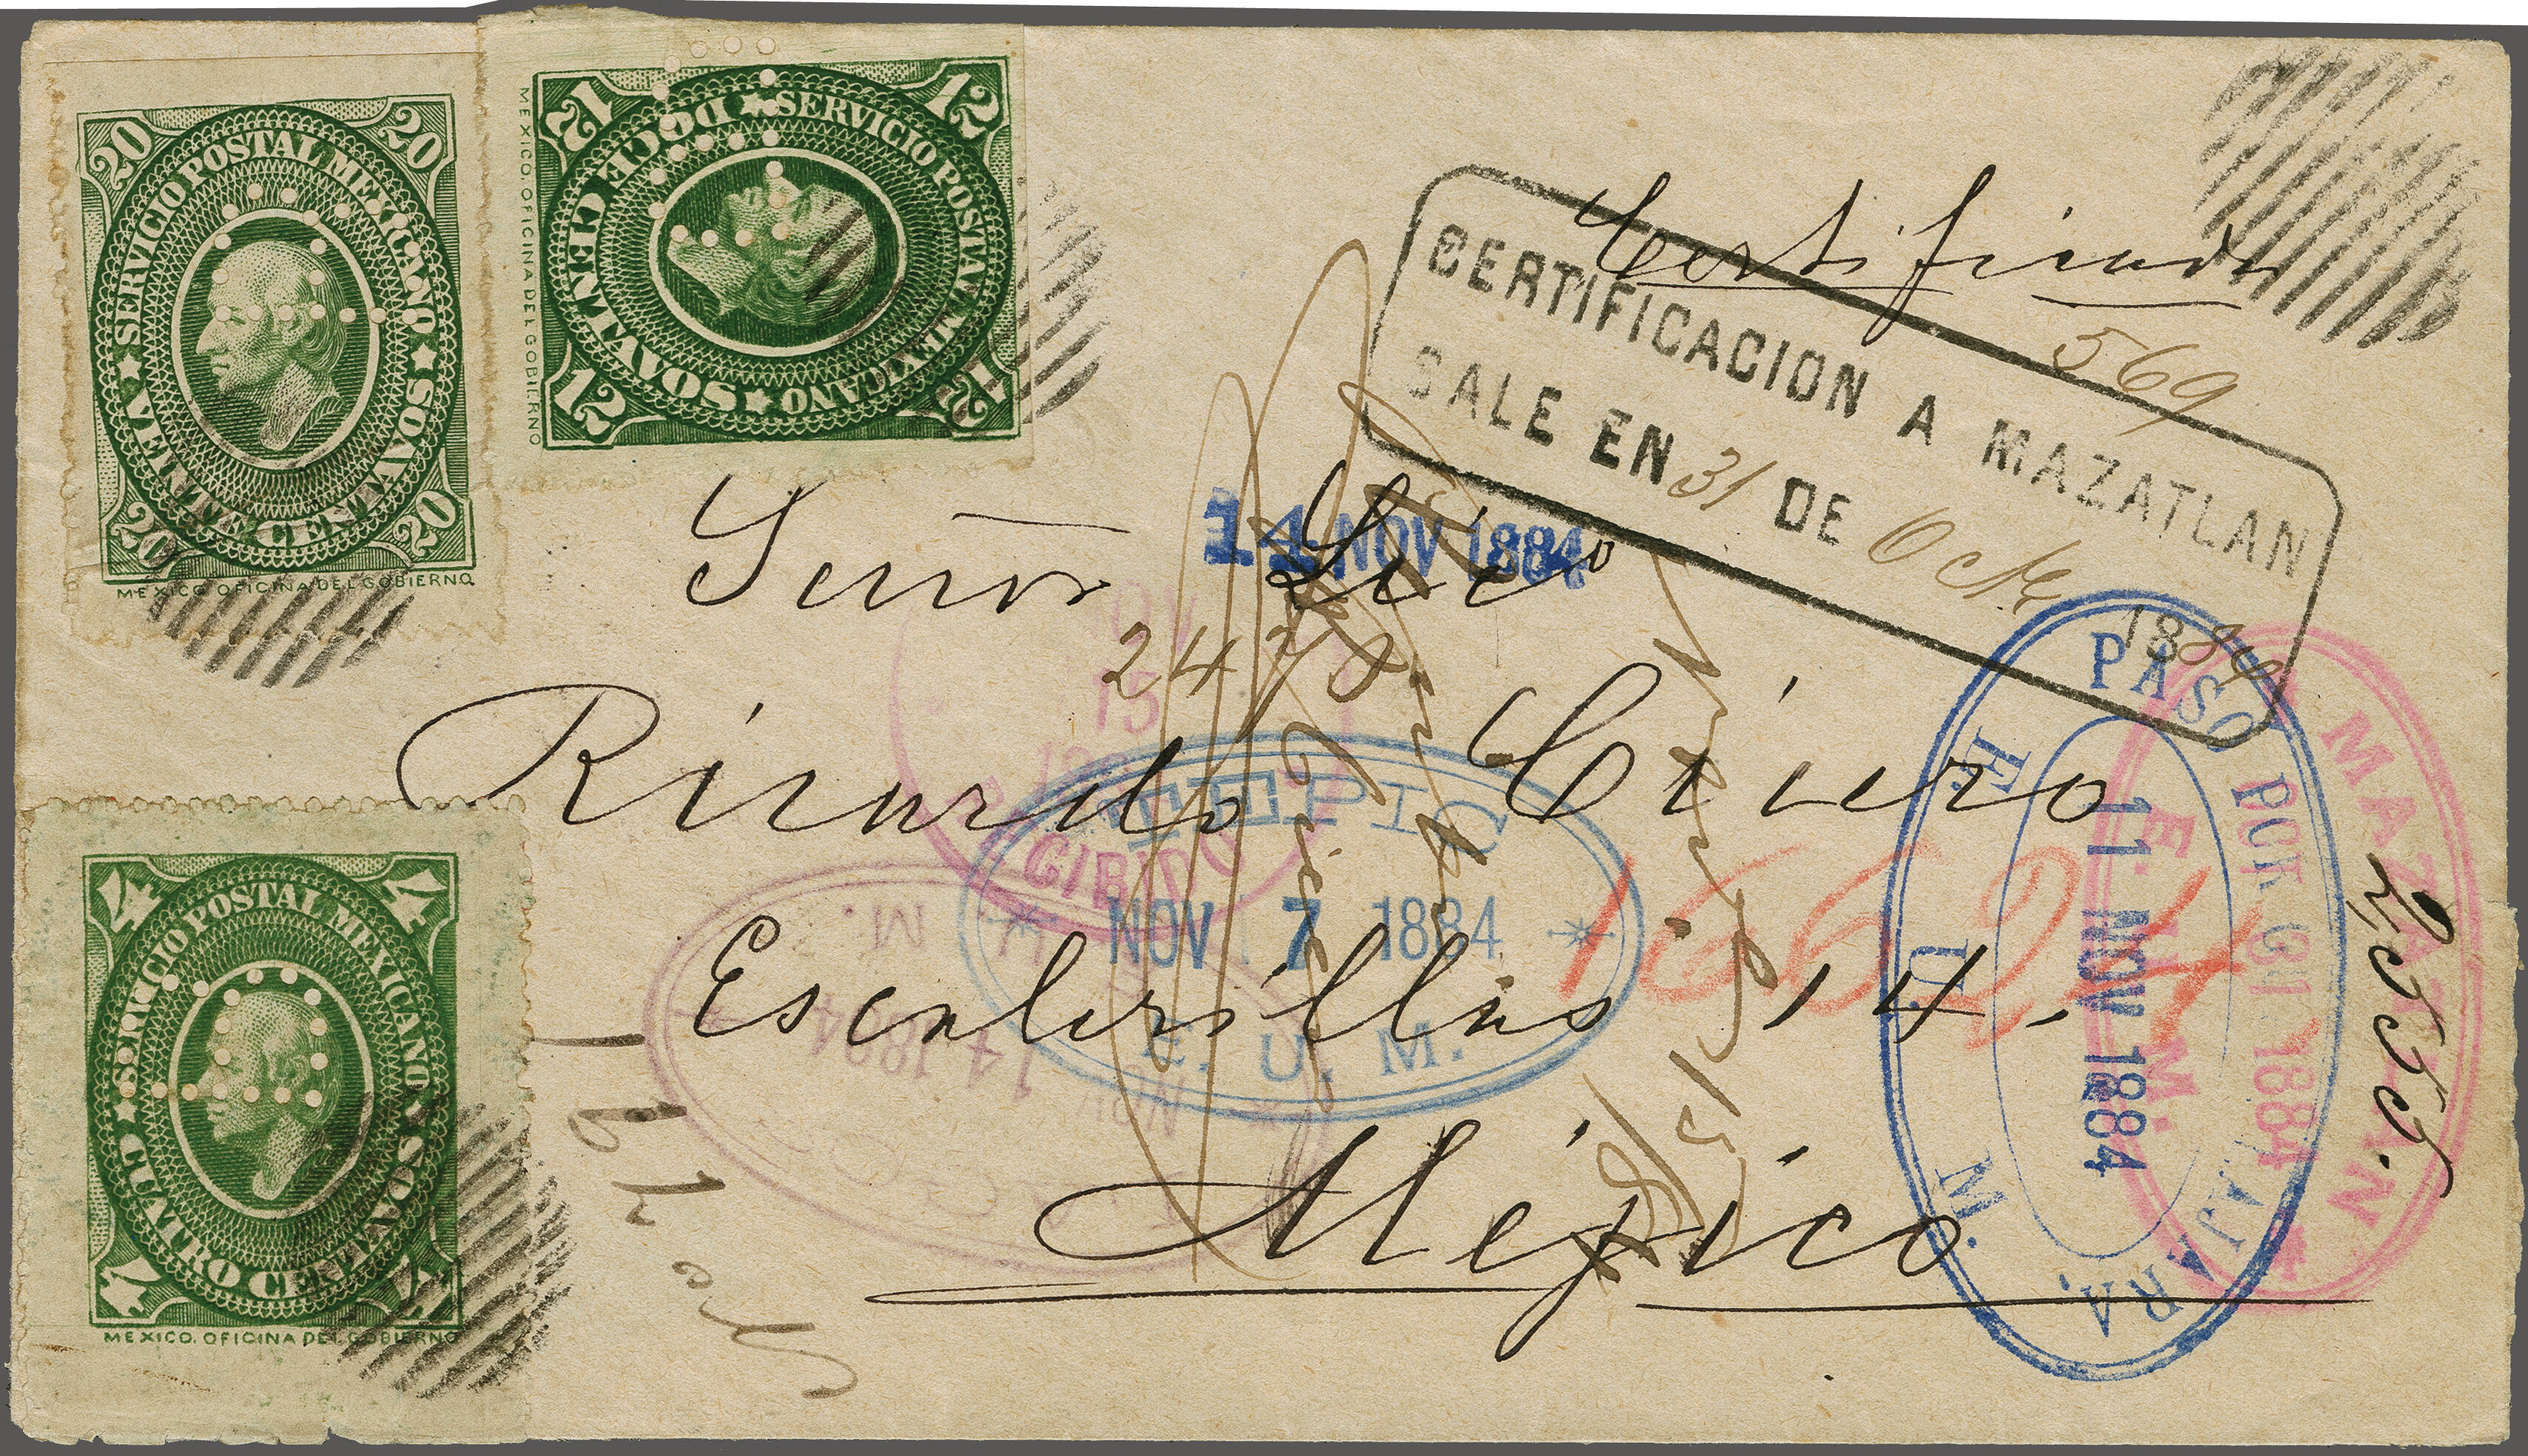 20 20
SERVICIO POSTAL MEXICANO
VEINTE CENTAVOS
20 20
MEXICO OFICINA DEL GOBIERNO
12 12
SERVICIO POSTAL MEXICANO
DOCE CENTAVOS
12 12
MEXICO. OFICINA DEL GOBIERNO
Certificada
569
CERTIFICACION A MAZATLAN
SALE EN 31 DE Octe 1884
14 NOV 1884
Señor Lic o
2478
Ricardo Cicero
Escalerillas 14.
Méjico
13
CIBIDO
TEPIC
NOV 7 1884
E. U. M.
M.
NOV 14 1884
16624
PASO POR G AJARA.
11 NOV 1884
E. U. M.
MAZATLAN
E. U. M.
OCT 31 1884
4 4
SERVICIO POSTAL MEXICANO
CUATRO CENTAVOS
4 4
MEXICO. OFICINA DEL GOBIERNO